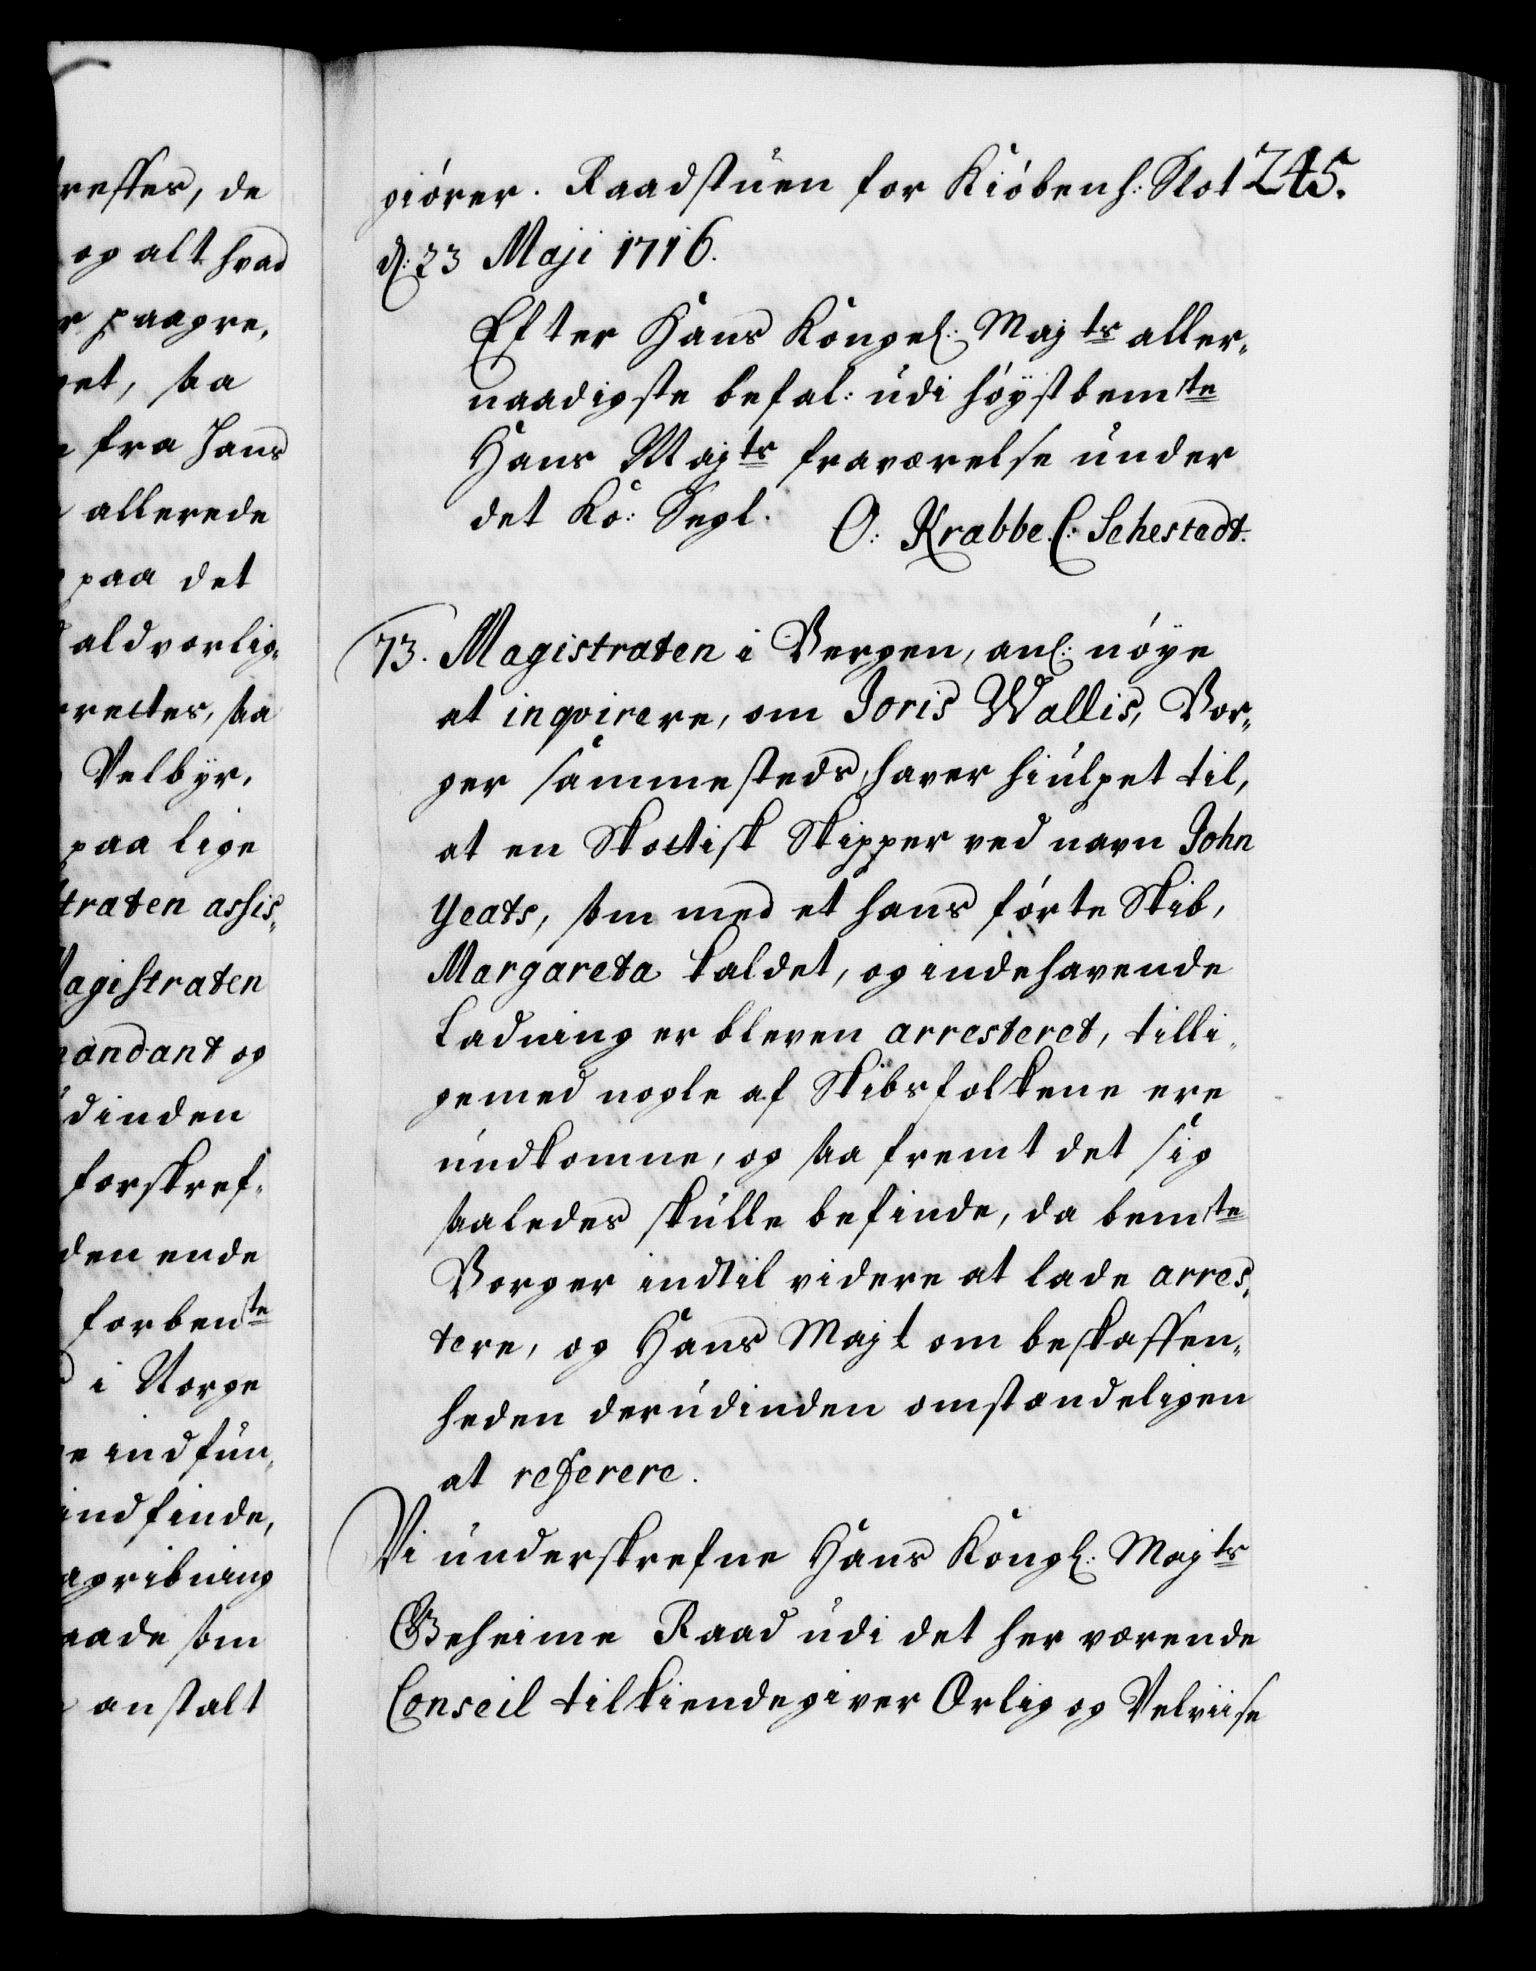 reffes, de
og alt hvad
r paagre,
get, saa
fra Hans
allerede
paa det
aldvorlig,
rectes, saa
Velbyr,
paa lige
traten assis,
agistraten
andant og
dinden
forskref,
den ende
forben<sup>te</sup>
i Norge
e indfun,
indfinde,
agribning
aade som
anstalt
245.
giórer. Raadstuen for Kióbenh: Slot
d: 23 Maji 1716.
Efter Hans Kongel: Majts aller,
naadigste befal: udi hóystbemte
Hans Majts fraværelse under
det Ko: Segl. O: Krabbe. C: Sehestedt.
73. Magistraten i Bergen, anl: nóye
at inqvirere, om Joris Wallis, Bor,
ger sammesteds, haver hiulpet til,
at en Skottisk Skipper ved navn John
Yeats, som med et hans fórte Skib,
Margareta kaldet, og indehavende
Ladning er bleven arresteret, tilli,
gemed nogle af Skibsfolkene ere
undkomne, og saa fremt det sig
saaledes skulle befinde, da bemte
Borger indtil videre at lade arres,
tere, og Hans Majt om beskaffen,
heden derudinden omstændeligen
at referere.
Vi underskrefne Hans Kongl: Majts
Geheime Raad udi det her værende
Conseil tilkiendegiver Ærlig og Velviise